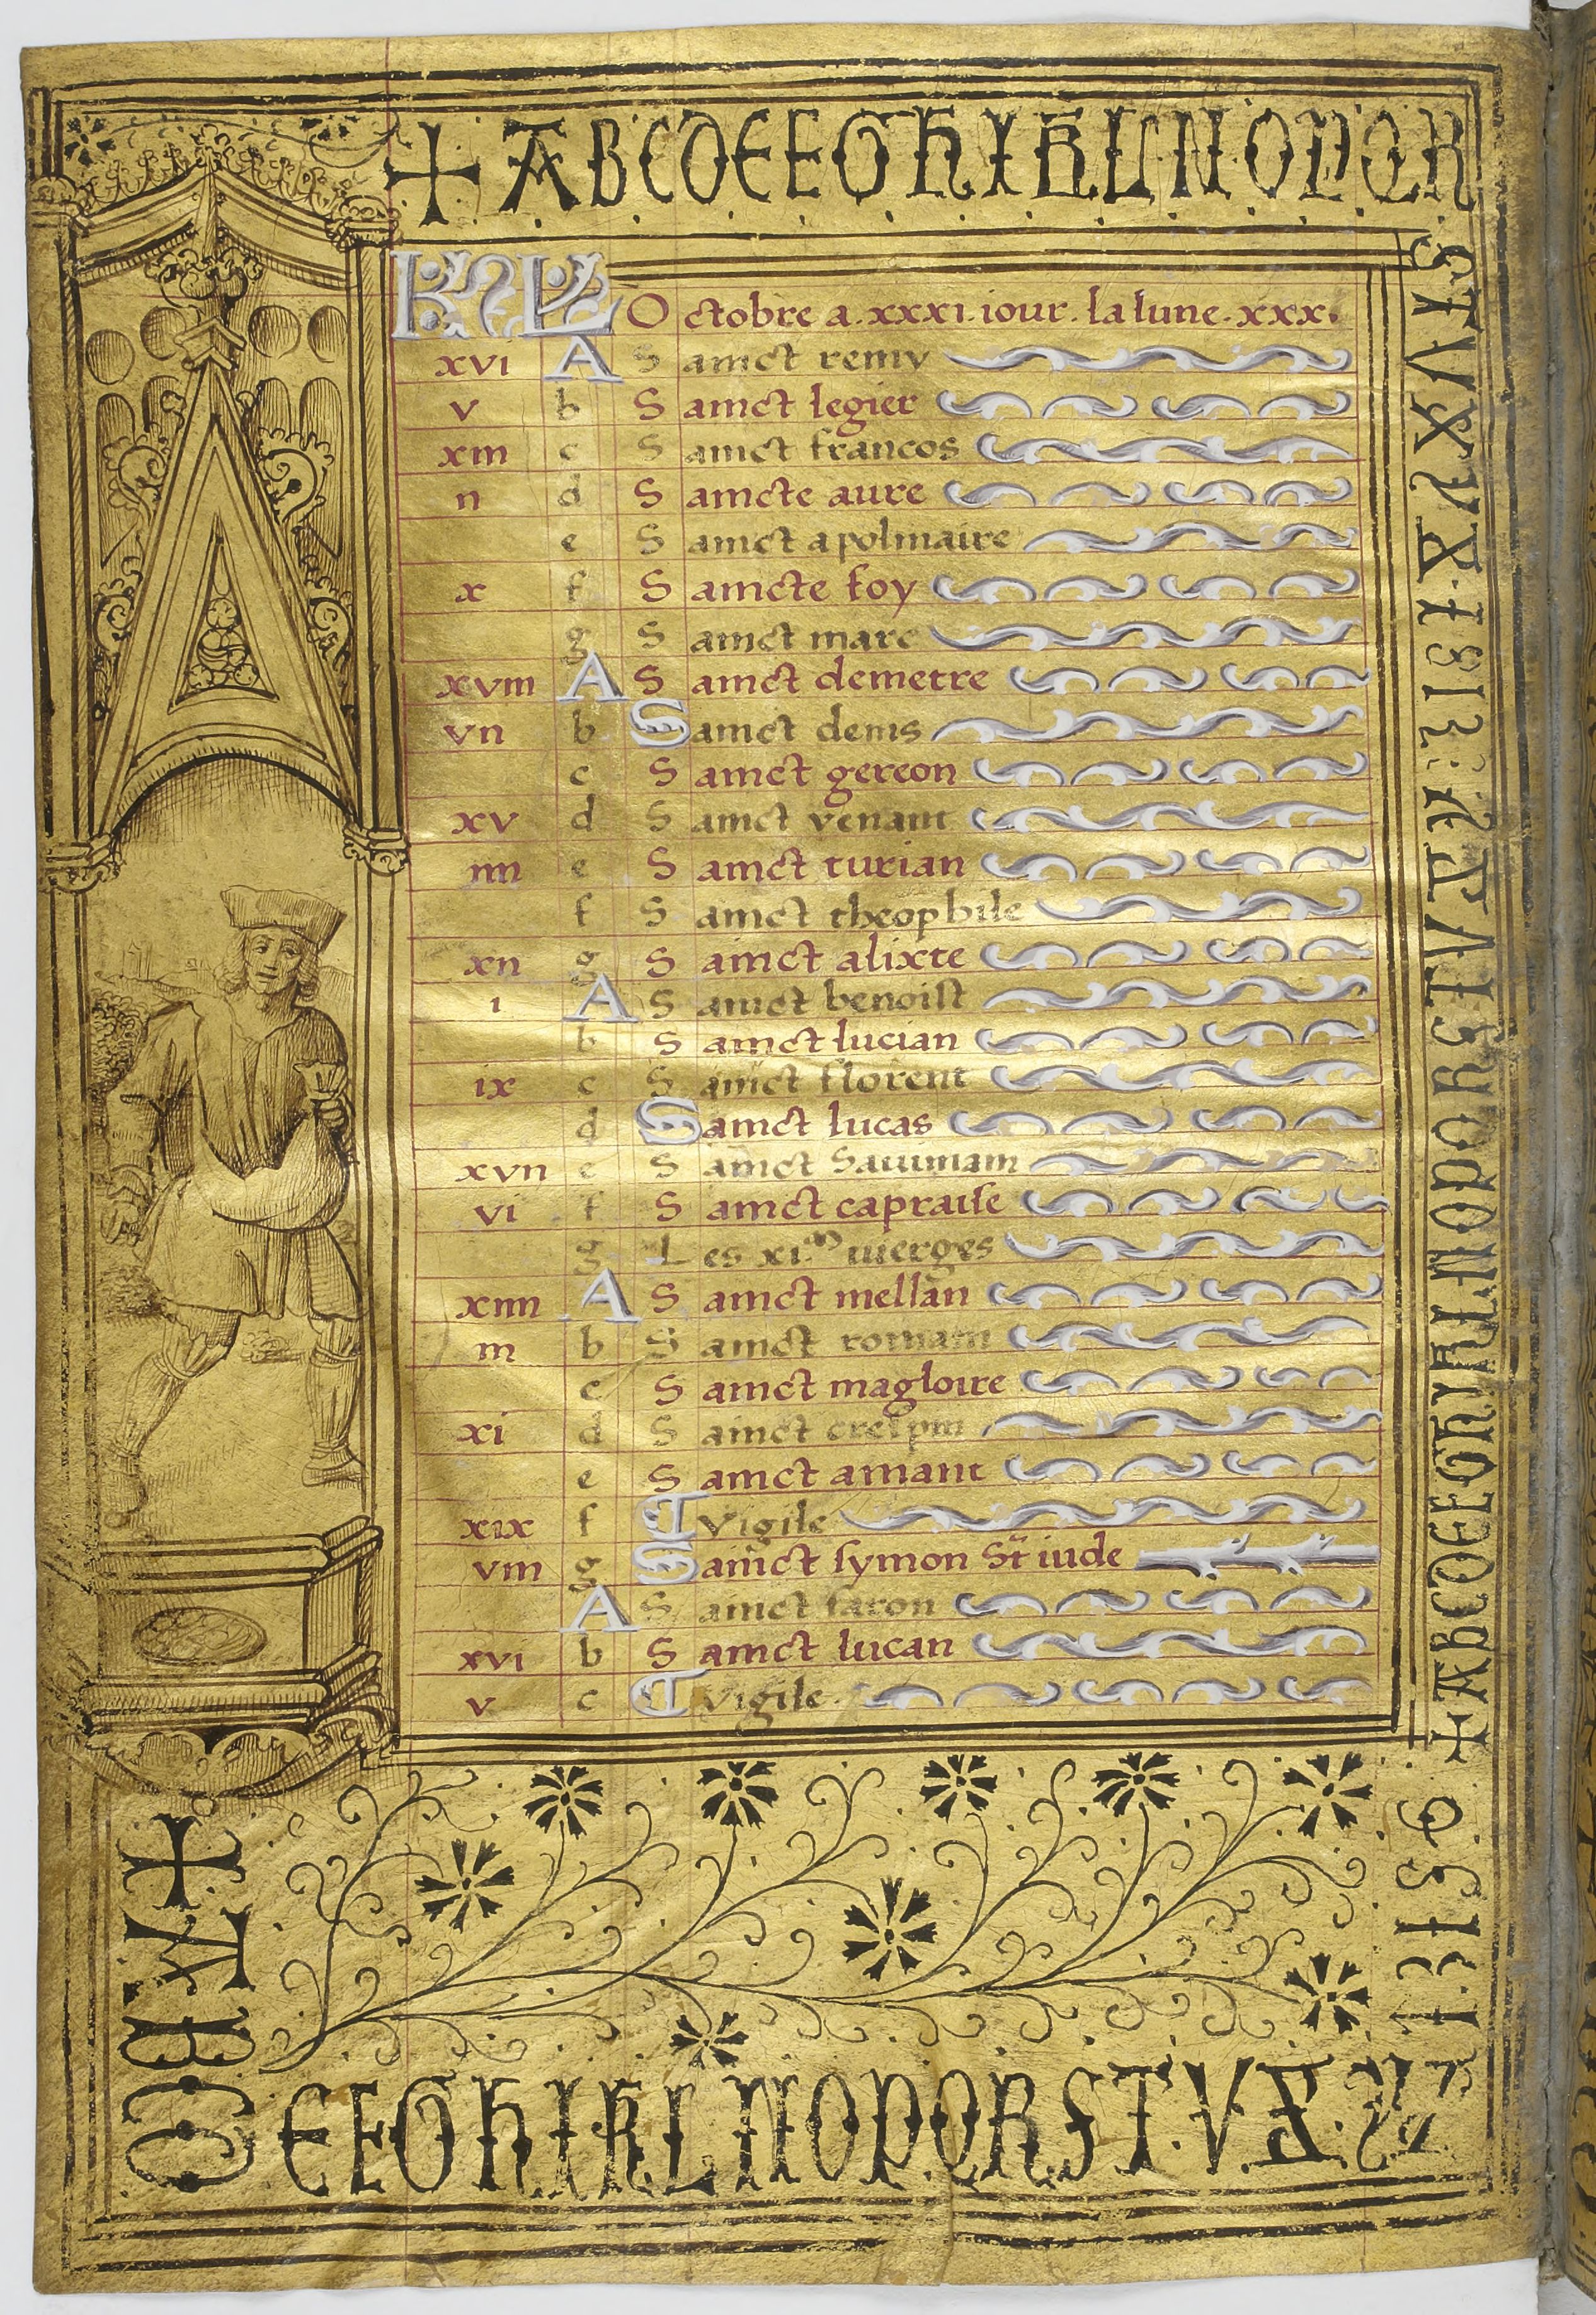 + A B C D E F G H I K L N O P Q R
KL Octobre a .xxxi. iour. la lune .xxx.
xvi A Sainct remy
v b Sainct legier
xiii c Sainct francos
ii d Saincte aure
e Sainct apolinaire
x f Saincte foy
g Sainct marc
xviii A Sainct demetre
vii b Sainct denis
c Sainct gereon
xv d Sainct venant
iiii e Sainct turian
f Sainct theophile
xii g Sainct alixte
i A Sainct benoist
b Sainct lucian
ix c Sainct florent
d Sainct lucas
xvii e Sainct Sauiniam
vi f Sainct capraise
g Les xi.m vierges
xiiii A Sainct mellan
iii b Sainct romain
c Sainct magloire
xi d Sainct crespin
e Sainct amant
xix f Vigile
viii g Sainct symon St iude
A Sainct faron
xvi b Sainct lucan
v c Vigile
+ A B C D E F G H I K L N O P Q R S T V
+ A B C D
E F G H I K L N O P Q R S T . V . X